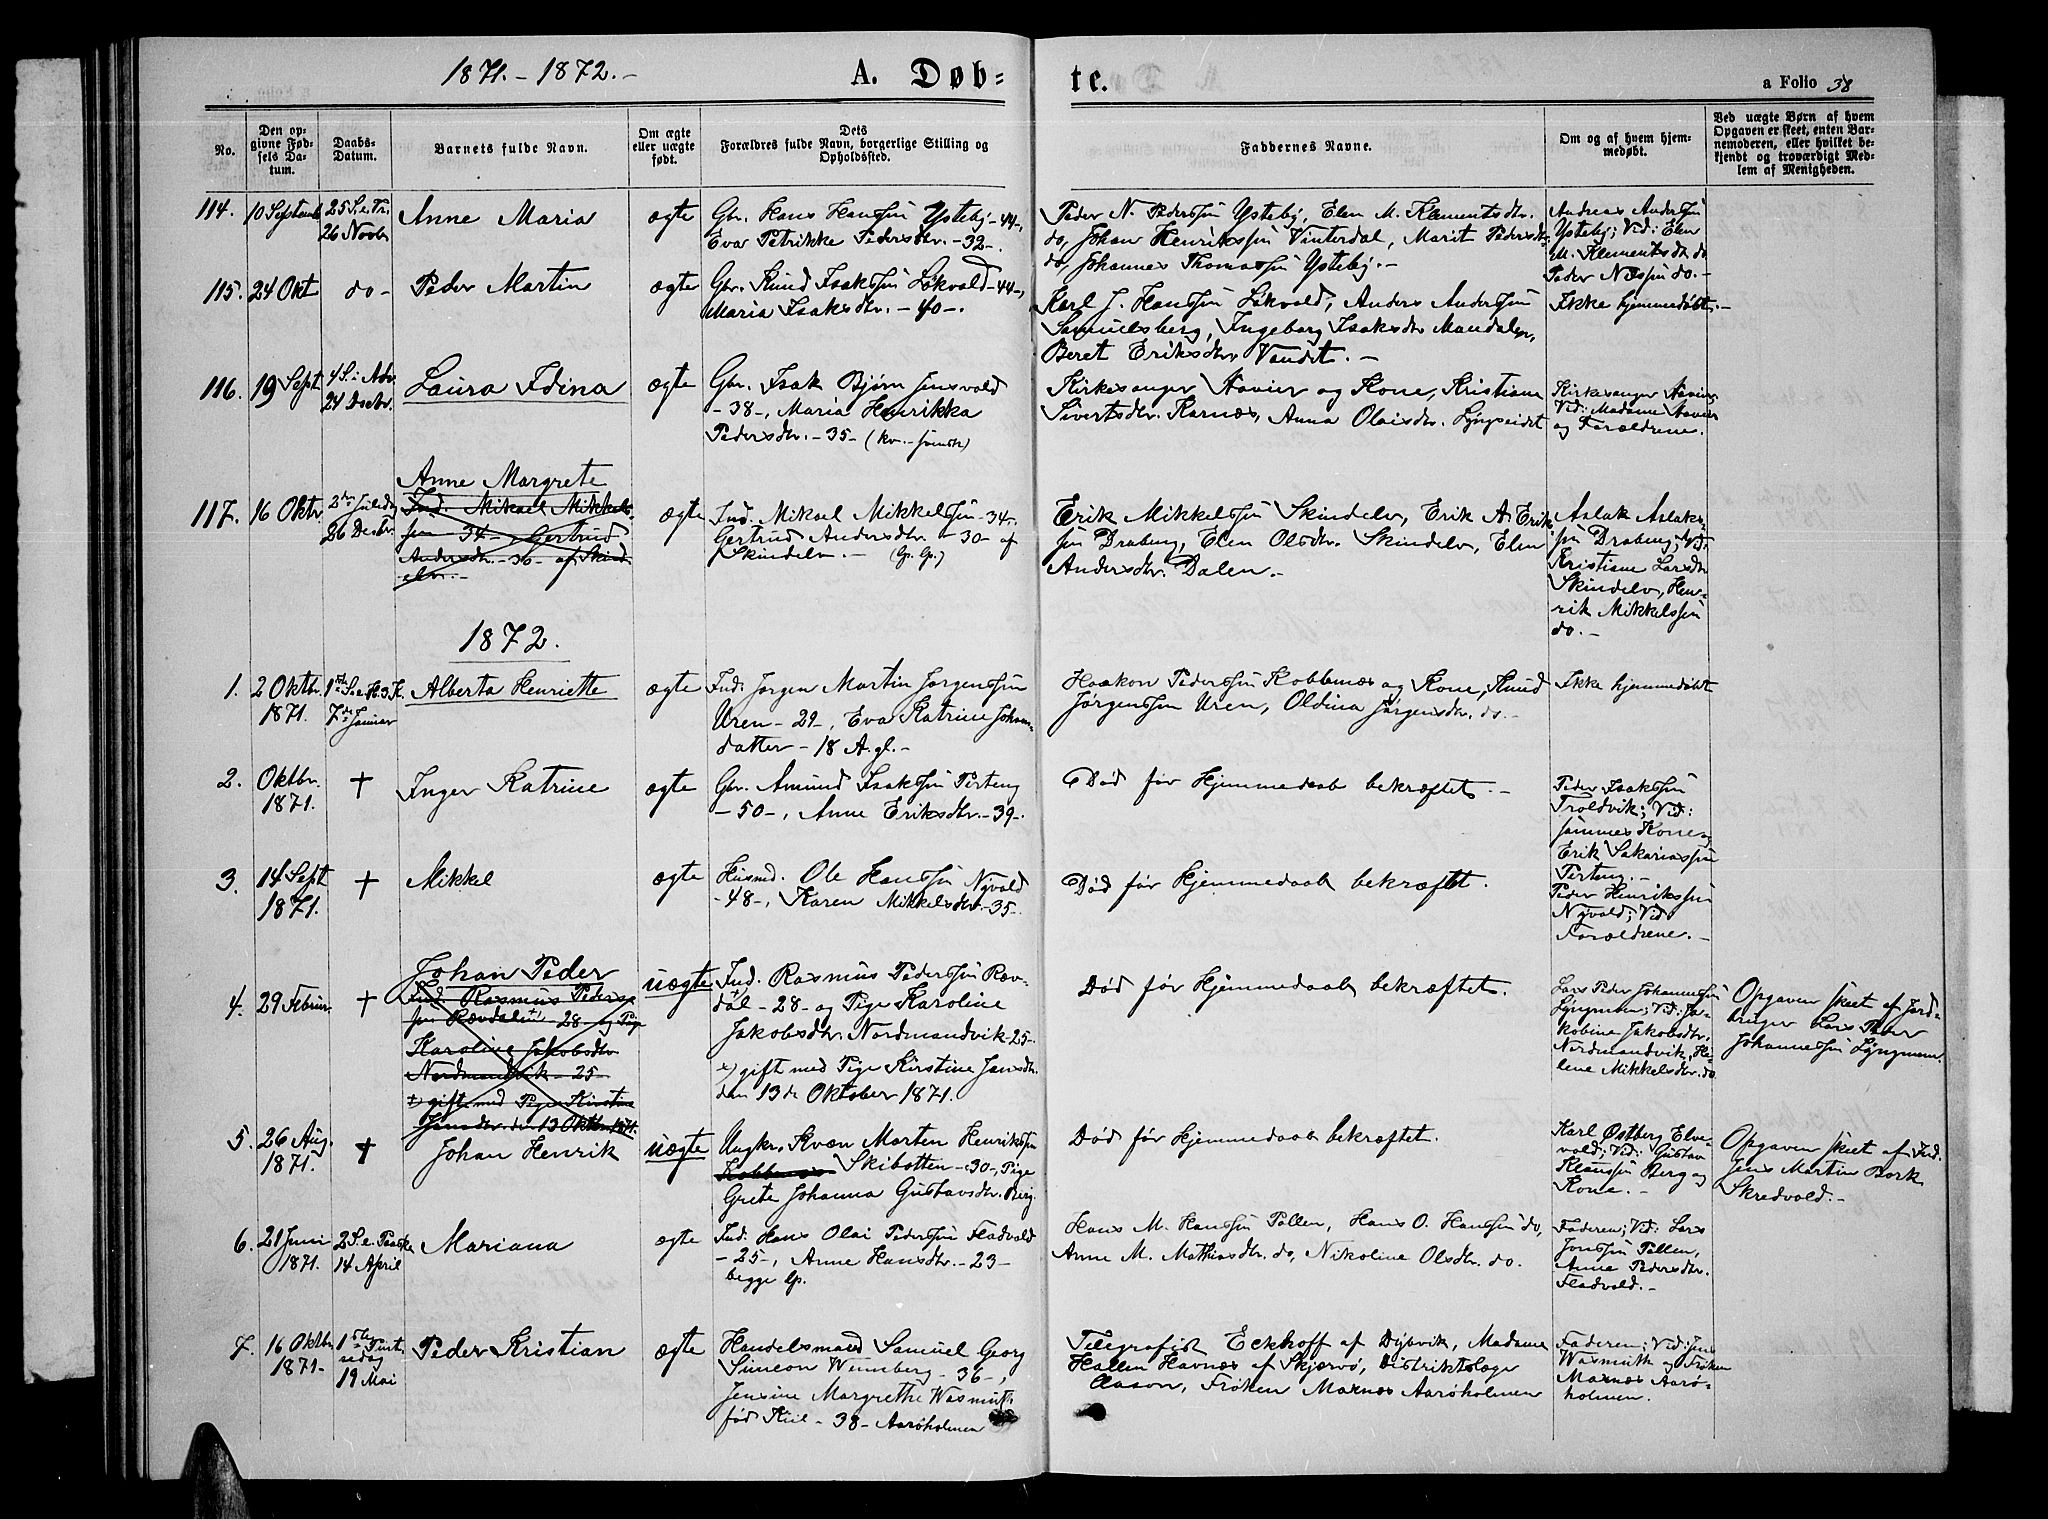 1871.-1872.-
A. Døb=
te.
a Folio 38
No.
Den op=
givne Fød=
sels Da=
tum.
Daabs=
Datum.
Barnets fulde Navn.
Om ægte
eller uægte
født.
Dets
Forældres fulde Navn, borgerlige Stilling og
Opholdssted.
Faddernes Navne.
Om og af hvem hjem=
medøbt.
Ved uægte Børn af hvem
Opgaven er skeet, enten Bar=
nemoderen, eller hvilket be=
kjendt og troværdigt Med=
lem af Menigheden.
114.
10 Septemb
25 S. e. Tr.
26 Novbr
Anne Maria
ægte
Gbr. Hans Hanssøn Ysteby -44-,
Eva Petrikke Pedersdtr. -32-.
Peder N. Pederssøn Ysteby, Elen M. Klementsdtr.
do, Johan Henrikssøn Vinterdal, Marit Pedersdtr
do, Johannes Thomassøn Ysteby.-
Andreas Anderssøn
Ysteby; Vid: Elen
M. Klementsdtr do
Peder Nilssøn do.-
115.
24 Okt
do-
Peder Martin
ægte
Gbr. Knud Isakssøn Løkvold -44-,
Maria Isaksdtr. -40-.
Karl J. Hanssøn Løkvold, Anders Anderssøn
Samuelsberg, Ingeborg Isaksdtr Mandalen,
Beret Eriksdtr Vandet.-
Ikke hjemmedøbt.-
116.
19 Sept
4 S. i Adv.
24 Decbr.
Laura Edina
ægte
Gbr. Isak Bjørn Jensvold
-38-, Maria Henrikka
Pedersdtr. -35- (kv.-
Kirkesanger Havier og Kone, Kristiane
Sivertsdtr. Karnæs, Anna Olaisdtr. Lyngseidet
Kirkesanger Havier
Vid: Madame Havier
og Forældrene.
117.
16 Oktr.
2den Juledag
26 Decbr
Anne Margrete
Ind. Mikael Mikkels-
søn -34- Gertrud
Andersdtr. -30- af Skind
elv.-
ægte
Ind. Mikael Mikkelssøn -34-
Gertrud Andersdtr. -30- af
Skindelv.- (G. G.)
Erik Mikkelssøn Skindelv, Erik A. Erik
søn Draberg, Elen Olsdtr. Skindelv, Elen
Andersdtr. Dalen.-
Aslak Aslaks-
søn Draberg; Vid:
Kristiane Larsdtr
Skindelv, Hen-
rik Mikkelssøn
do.-
1872.
1.
2 Oktbr.
1871.
1ste S. e. H. 3 K.
7de Januar
Alberta Henriette
ægte
Ind. Jørgen Martin Jørgenssøn
Uren -29-, Eva Katrine Johans-
datter -18 A. gl.-
Haakon Pederssøn Kobbenæs og Kone, Knud
Jørgenssøn Uren, Oldina Jørgensdtr. do.-
Ikke hjemmedøbt
2.
Oktbr.
1871.
+
Inger Katrine
ægte
Gbr. Amund Isakssøn Pertung
-50-, Anne Eriksdtr. -39-.
Død før Hjemmedaab bekræftet.-
Peder Isakssøn
Troldvik; Vid:
sammes Kone og
Erik Sakariassøn
Perteng.-
3.
14 Sept
1871.
+
Mikkel
ægte
Husmd. Ole Hanssøn Nyvold
-48-, Karen Mikkelsdtr. -35-.
Død før Hjemmedaab bekræftet.
Peder Henrikssøn
Nyvold; Vid:
Forældrene.-
4.
29 Februar
+
Johan Peder
Ind. Rasmus Peders-
søn Rævdalen -28- og Pige
Karoline Jakobsdtr
Nordmandvik -25-
gift med Pige Kirstine
Jensdtr den 13 Oktbr 1871.
uægte
Ind. Rasmus Pederssøn Ræv-
dal -28- og Pige Karoline
Jakobsdtr. Nordmandvik -25-.
gift med Pige Kirstine Jensdtr.
den 13de Oktober 1871.
Død før Hjemmedaab bekræftet.
Lars Peder Johannessøn
Lyngmoen; Vid: Ja-
kobine Jakobsdtr.
Nordmandvik, He-
lene Mikkelsdtr. do.
Opgaven skeet af Jord-
bruger Lars Peder
Johannessøn Lyngmoen.
5.
26 Aug.
1871.
+
Johan Henrik
uægte
Ungkr. Kvæn Morten Henrikssøn
Kobbenæs Skibotten -30-, Pige
Grete Johanna Gustavsdtr. Berg.
Død før Hjemmedaab bekræftet.
Karl Østberg Elve-
vold; Vid: Gustav
Klaussøn Berg og
Kone.-
Opgaven skeet af Ind.
Jens Martin Bork
Skredvold.-
6.
21 Juni
1871.
2 S. e. Paaske
14 April
Mariana
ægte
Ind. Hans Olai Pederssøn Fladvold
-25-, Anne Hansdtr. -23-
begge lp.
Hans M. Hanssøn Pollen, Hans O. Hanssøn do,
Anne M. Mathisdtr. do, Nikoline Olsdtr. do.
Faderen; Vid: Lars
Jonssøn Pollen,
Anne Pedersdtr.
Fladvold.-
7.
16 Oktbr.
1871-
1ste Pint
sedag
19 Mai
Peder Kristian
ægte
Handelsmand Samuel Georg
Simeon Wennberg -36-,
Jensine Margrethe Wasmuth
fød Kiil -38- Aarøholmen
Telegrafist Eckhoff af Djupvik, Madame
Hallen Havnæs af Skjervø, Distriktslæge
Aason, Frøken Maxnæs Aarøholmen
Faderen; Vid: Jens
Wasmuth og Frøken
Maxnæs Aarø-
holmen.